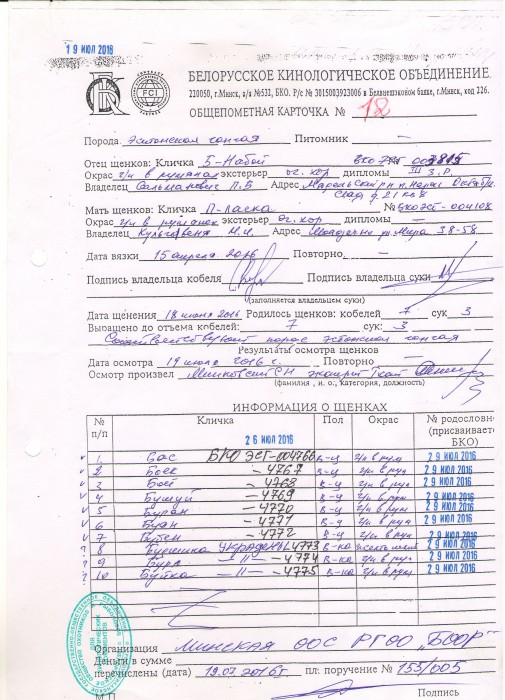 19 ИЮЛ 2016
FCI
БЕЛОРУССКОЕ КИНОЛОГИЧЕСКОЕ ОБЪЕДИНЕНИЕ
220050, г.Минск, а/я №532, БКО. Р/с № 3015003923006 в Белвнешэконом банке, г.Минск, код 226.
ОБЩЕПОМЕТНАЯ КАРТОЧКА № 12
Порода Эстонская гончая Питомник —
Отец щенков: Кличка Б-Набой БКО ЭГ
Окрас ч/п в румянах экстерьер оч. хор дипломы III 3.р.
Владелец П.Б Адрес
Мать щенков: Кличка П-Ласка № БКОЭСТ-004108
Окрас ч/п в румянах экстерьер оч. хор дипломы —
Владелец Н.И. Адрес Молодечно ул. Мира 38-58
Дата вязки 15 апреля 2016 Повторно —
Подпись владельца кобеля Подпись владельца суки
(заполняется владельцем суки)
Дата щенения 18 июня 2016 Родилось щенков: кобелей 7 сук 3
Выращено до отъема кобелей: 7 сук: 3
Соответствуют породе эстонская гончая
Результаты осмотра щенков
Дата осмотра 19 июля 2016 г. Повторно —
Осмотр произвел Минковский СН эксперт
(фамилия , и. о., категория, должность)
ИНФОРМАЦИЯ О ЩЕНКАХ
№ п/п Кличка Пол Окрас № родословной (присваивает БКО)
26 ИЮЛ 2016
1 Бас БКО ЭСТ-004766 к-ц ч/п в рум 29 ИЮЛ 2016
2 Боек —4767 к-ц ч/п в рум 29 ИЮЛ 2016
3 Бой —4768 к-ц ч/п в рум 29 ИЮЛ 2016
4 Бушуй —4769 к-ц ч/п в рум 29 ИЮЛ 2016
5 Буран —4770 к-ц ч/п в рум 29 ИЮЛ 2016
6 Буян —4771 к-ц ч/п в рум 29 ИЮЛ 2016
7 —4772 к-ц ч/п в рум 29 ИЮЛ 2016
8 4773 к-ка 29 ИЮЛ 2016
9 Бура —11— —4774 к-ка ч/п в рум 29 ИЮЛ 2016
10 Буйка —11— —4775 к-ка ч/п в рум 29 ИЮЛ 2016
Организация Минская ООС РГОО „БООР"
Деньги в сумме
перечислены (дата) 19.07.2016г пл: поручение № 153/005
М П Подпись